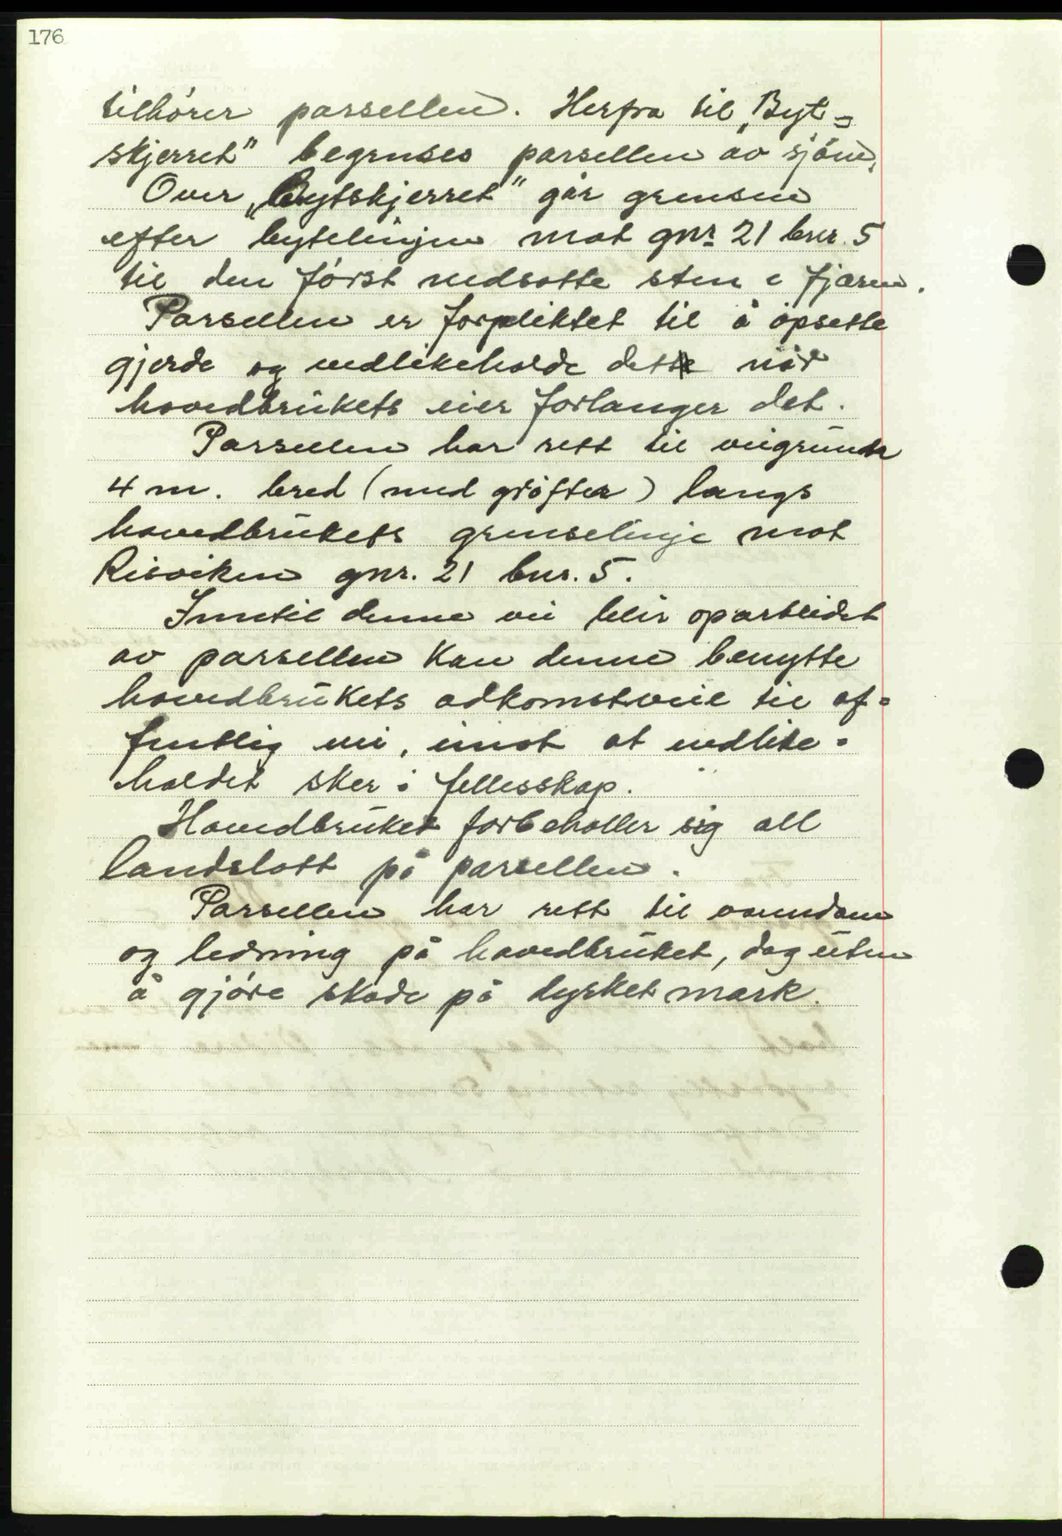 176
tilhører parsellen. Herfra til „Byt=
skjerret" begrenses parsellen av sjøen.
Over „Bytskjerret" går grensen
efter bytelinjen mot gnr 21 bnr. 5
til den først nedsatte sten i fjæren.
Parsellen er forpliktet til å opsette
gjerde og vedlikeholde dette når
hovedbrukets eier forlanger det.
Parsellen har rett til veigrunn
4 m. bred (med grøfter) langs
hovedbrukets grenselinje mot
Risviken gnr. 21 bnr. 5.
Inntil denne vei blir oparbeidet
av parsellen kan denne benytte
hovedbrukets adkomstveie til of=
fentlig vei, imot at vedlike=
holdet sker i fellesskap.
Hovedbruket forbeholler sig all
landslott på parsellen.
Parsellen har rett til vanndam
og ledning på hovedbruket, dog uten
å gjøre skade på dyrket mark.